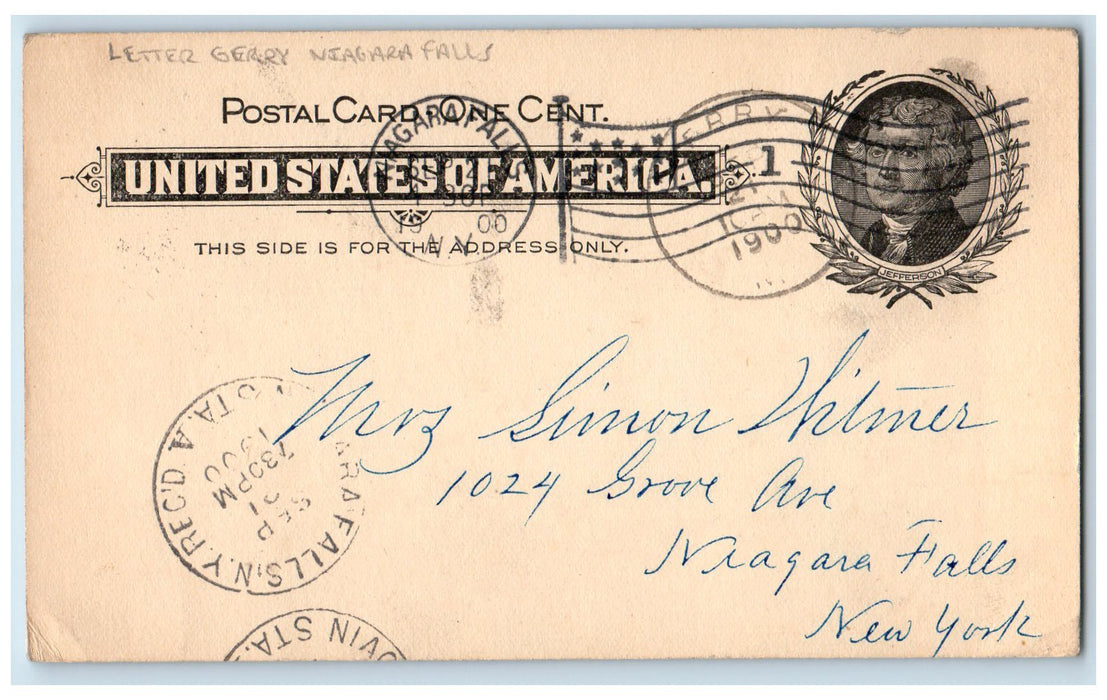 LETTER GERRY NIAGARA FALLS
POSTAL CARD - ONE CENT.
UNITED STATES OF AMERICA.
THIS SIDE IS FOR THE ADDRESS ONLY.
NIAGARA FALLS
19 00
N.Y.
ERRY
1900
1
JEFFERSON
Mrs Simon Witmer
1024 Grove Ave
Niagara Falls
New York
ARA FALLS, N.Y. REC'D. STA. A
SEP
21
730PM
1900
STA.